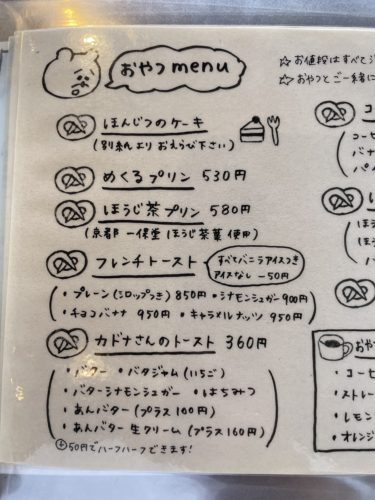 おやつ menu
☆お値段はすべて
☆おやつとご一緒に
ほんじつのケーキ
(別紙より おえらび下さい)
めくるプリン 530円
ほうじ茶プリン 580円
(京都 一保堂 ほうじ茶葉 使用)
フレンチトースト
すべてバニラアイスつき
アイスなし -50円
・プレーン(シロップつき) 850円 ・シナモンシュガー 900円
・チョコバナナ 950円 ・キャラメルナッツ 950円
カドナさんのトースト 360円
・バター ・バタジャム(いちご)
・バターシナモンシュガー ・はちみつ
・あんバター(プラス100円)
・あんバター生クリーム(プラス160円)
50円でハーフハーフできます!
コーヒ
バナ
パイ
ほうし
ほう
ほう
おや
・コーヒ
・ストレー
・レモン
・オレンジ